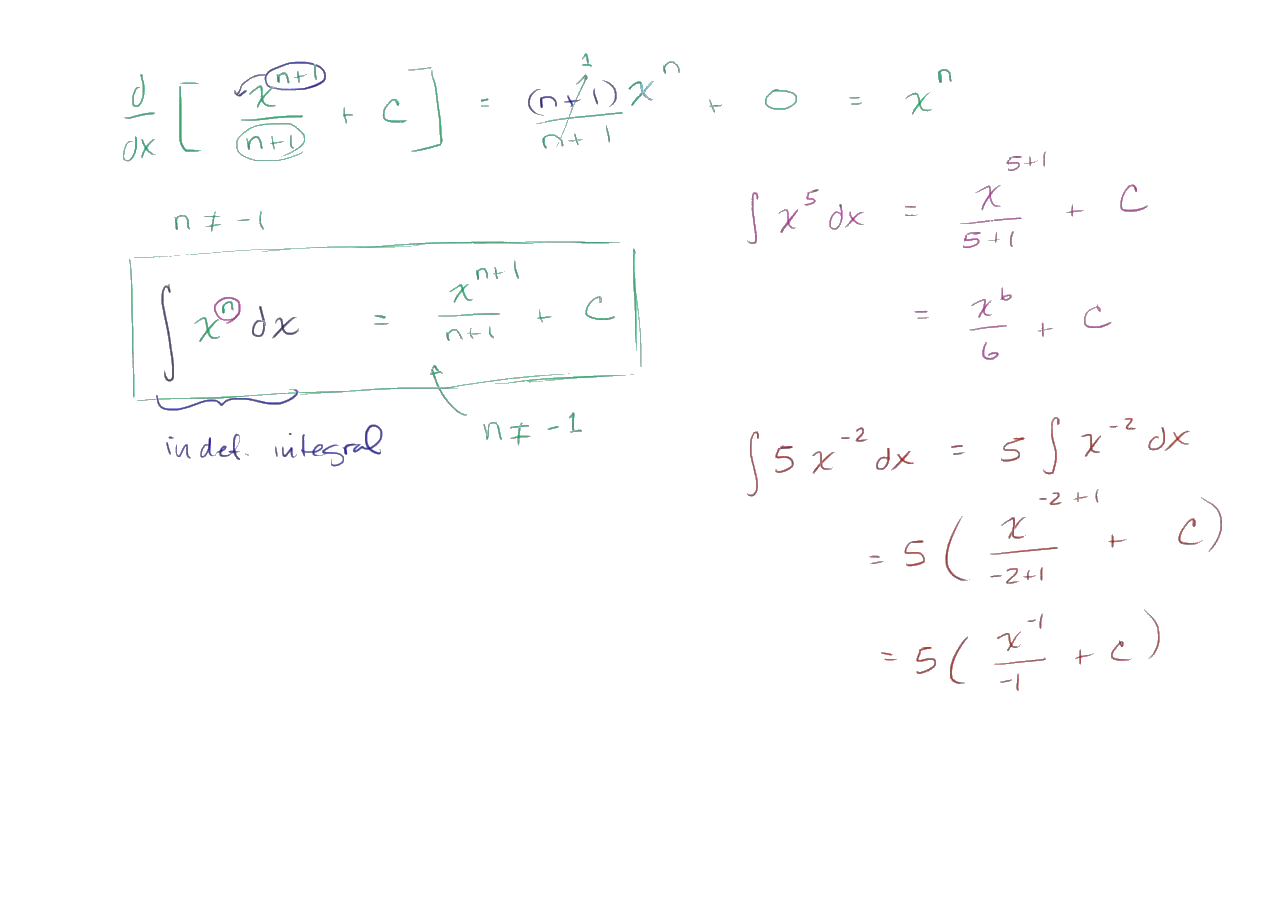 d/dx [ x^(n+1)/(n+1) + C ] = (n+1)x^n/(n+1) 1 + 0 = x^n
n ≠ -1
∫ x^n dx = x^(n+1)/(n+1) + C
n ≠ -1
indef. integral
∫ x^5 dx = x^(5+1)/(5+1) + C
= x^6/6 + C
∫ 5 x^(-2) dx = 5 ∫ x^(-2) dx
= 5 ( x^(-2+1)/(-2+1) + C )
= 5 ( x^(-1)/(-1) + C )